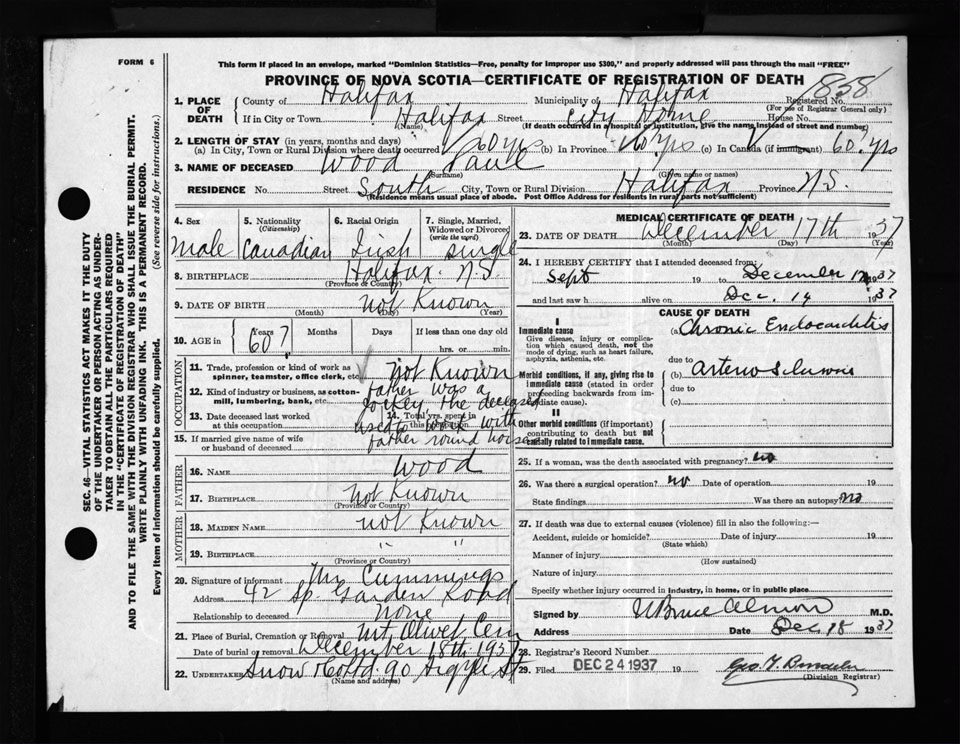 FORM 6
This form if placed in an envelope, marked "Dominion Statistics—Free, penalty for improper use $300," and properly addressed will pass through the mail "FREE"
PROVINCE OF NOVA SCOTIA—CERTIFICATE OF REGISTRATION OF DEATH
858
1. PLACE OF DEATH County of Halifax Municipality of Halifax Registered No.
(For use of Registrar General only)
If in City or Town Halifax Street City Home House No.
(Name) (If death occurred in a hospital or institution, give the name instead of street and number)
2. LENGTH OF STAY (in years, months and days)
(a) In City, Town or Rural Division where death occurred 60 yrs (b) In Province 60 yrs (c) In Canada (if immigrant) 60 yrs
3. NAME OF DECEASED Wood Paul
(Surname) (Given name or names)
RESIDENCE No. Street South City, Town or Rural Division Halifax Province N.S.
(Residence means usual place of abode. Post Office Address for residents in rural parts not sufficient)
4. Sex 5. Nationality (Citizenship) 6. Racial Origin 7. Single, Married, Widowed or Divorced (write the word)
Male Canadian Irish Single
8. BIRTHPLACE Halifax. N.S.
(Province or Country)
9. DATE OF BIRTH not Known
(Month) (Day) (Year)
10. AGE in Years Months Days If less than one day old
60? hrs. or min.
OCCUPATION
11. Trade, profession or kind of work as spinner, teamster, office clerk, etc. not Known
12. Kind of industry or business, as cotton-mill, lumbering, bank, etc. father was a
jockey the deceased
13. Date deceased last worked at this occupation 14. Total yrs. spent in this occupation
used to work with
15. If married give name of wife or husband of deceased father round horses
FATHER
16. NAME Wood
17. BIRTHPLACE not Known
(Province or Country)
MOTHER
18. MAIDEN NAME not Known
19. BIRTHPLACE " "
(Province or Country)
20. Signature of informant Mr Cummings
Address 42 Sp. Garden Road
Relationship to deceased none
21. Place of Burial, Cremation or Removal Mt. Olivet Cem
Date of burial or removal December 18th 1937
22. UNDERTAKER Snow & Co Ltd. 90 Argyle St
(Name and address)
MEDICAL CERTIFICATE OF DEATH
23. DATE OF DEATH December 17th 1937
(Month) (Day) (Year)
24. I HEREBY CERTIFY that I attended deceased from:
Sept 19 to December 17 1937
and last saw h alive on Dec. 14 1937
CAUSE OF DEATH
I
Immediate cause (a) Chronic Endocarditis
Give disease, injury or complication which caused death, not the mode of dying, such as heart failure, asphyxia, asthenia, etc.
due to
Morbid conditions, if any, giving rise to immediate cause (stated in order proceeding backwards from immediate cause). (b) arterio sclerosis
due to
(c)
II
Other morbid conditions (if important) contributing to death but not causally related to immediate cause.
25. If a woman, was the death associated with pregnancy? no
26. Was there a surgical operation? no Date of operation 19
State findings Was there an autopsy? no
27. If death was due to external causes (violence) fill in also the following:—
Accident, suicide or homicide? Date of injury 19
(State which)
Manner of injury
(How sustained)
Nature of injury
Specify whether injury occurred in industry, in home, or in public place
Signed by W Bruce Almon M.D.
Address Date Dec. 18 1937
28. Registrar's Record Number
29. Filed DEC 24 1937 19
(Division Registrar)
SEC. 46—VITAL STATISTICS ACT MAKES IT THE DUTY
OF THE UNDERTAKER OR PERSON ACTING AS UNDER-
TAKER TO OBTAIN ALL THE PARTICULARS REQUIRED
IN THE "CERTIFICATE OF REGISTRATION OF DEATH"
AND TO FILE THE SAME WITH THE DIVISION REGISTRAR WHO SHALL ISSUE THE BURIAL PERMIT.
WRITE PLAINLY WITH UNFADING INK. THIS IS A PERMANENT RECORD.
Every item of information should be carefully supplied. (See reverse side for instructions.)